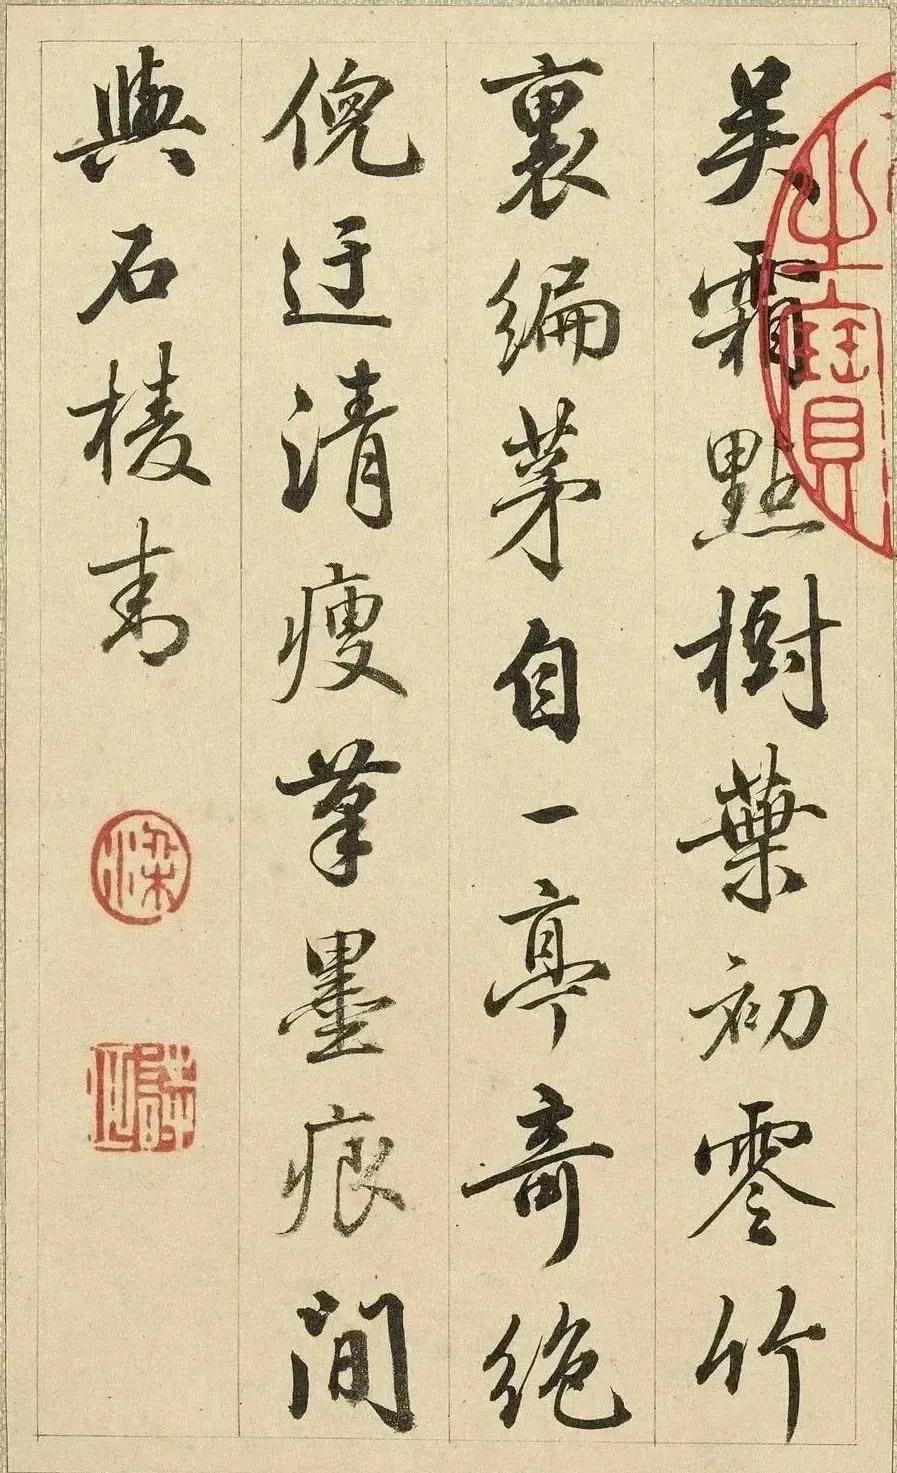 吳霜點樹葉初零竹
裏編茅自一亭奇絶
倪迂清瘦筆墨痕間
與石棱青
之寶
梁